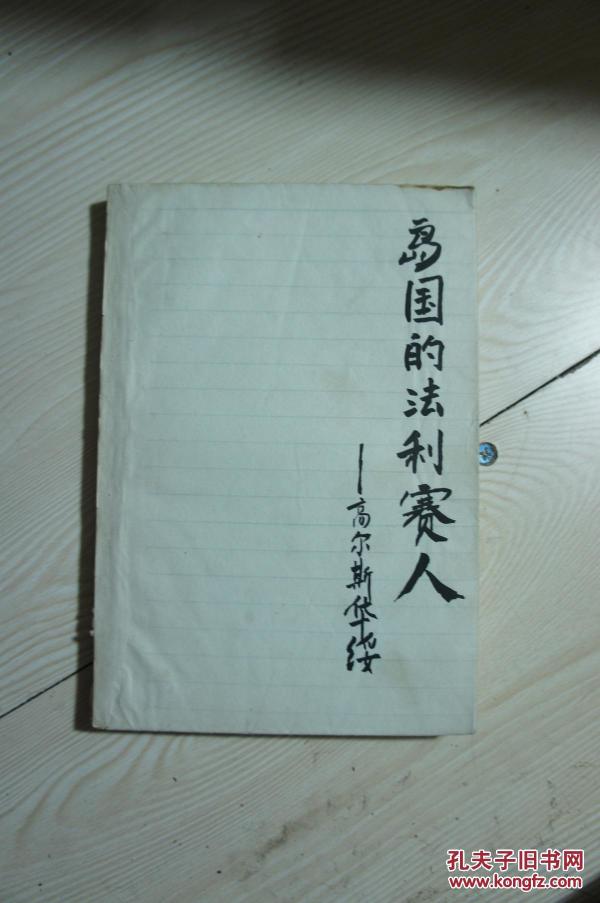 岛国的法利赛人
—高尔斯华绥
孔夫子旧书网
www.kongfz.com